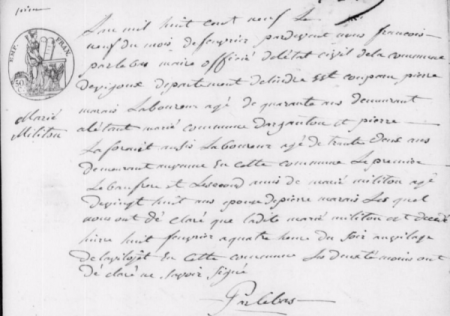 EMP. FRAN.
Marie
Militon
L'an mil huit cent neuf le
neuf du mois de feuprier pardevant nous francois
parlebas maire officié delétat civil dela commune
departement delindre est comparu pierre
marais Laboureur agé de quarante ans demeurant
alétant marié commune dargenton et pierre
Laforaiet ausis Laboureur agé de trente deux ans
demeurant en cette commune Le premier
Lebaufrere et Lesecond amis de marie militon agé
devingt huit ans de pierre marais Les quel
nous ont dé claré que ladite marie militon est decedé
hierre huit feuprier a quatre heure du soir au vilage
en cette commune Les deux témoins ont
dé claré ne savoir signé
Parlebas